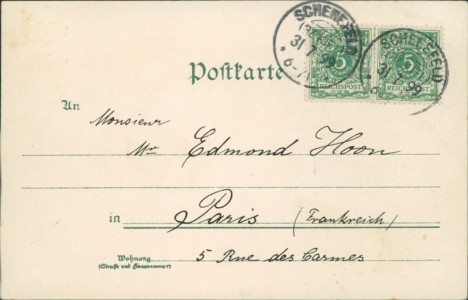 SCHENEFELD
31 7 98
6-7
SCHENEFELD
31 7 98
5
REICHSPOST
5
REICHSPOST
Postkarte
An
Monsieur
Mr Edmond Hoon
in Paris (Frankreich)
Wohnung
(Straße und Hausnummer)
5 Rue des Carmes